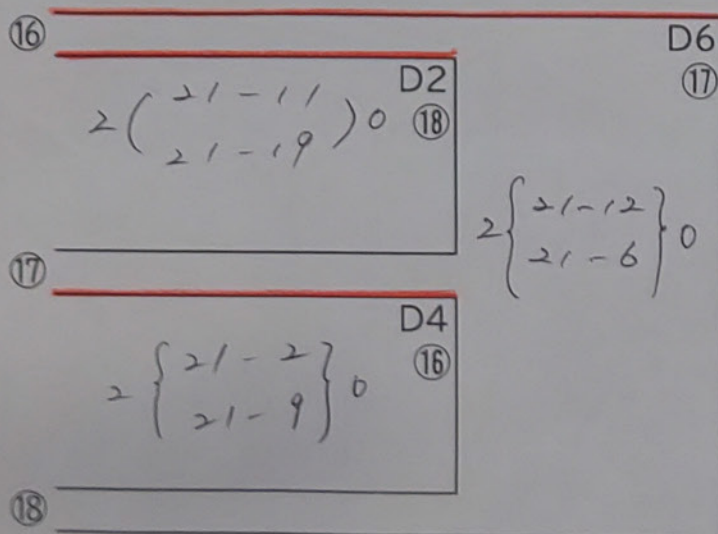 ⑯
D6
⑰
D2
⑱
2 ( 21-11
21-19 ) 0
2 { 21-12
21-6 } 0
⑰
D4
⑯
2 { 21-2
21-9 } 0
⑱